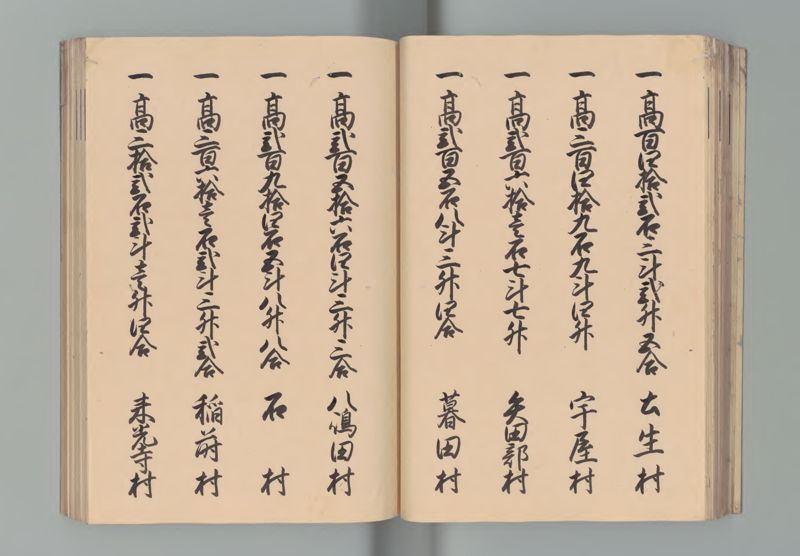 一 高百四拾弐石三斗弐升五合 玄生村
一 高三百四拾九石九斗四升 宇屋村
一 高弐百六拾壱石七斗七升 矢田部村
一 高弐百五石八斗三升四合 暮田村
一 高弐百五拾六石四斗三升三合 八嶋田村
一 高弐百九拾四石五斗八升八合 石村
一 高三百六拾壱石弐斗三升弐合 稲荷村
一 高三拾弐石弐斗壱升四合 来光寺村